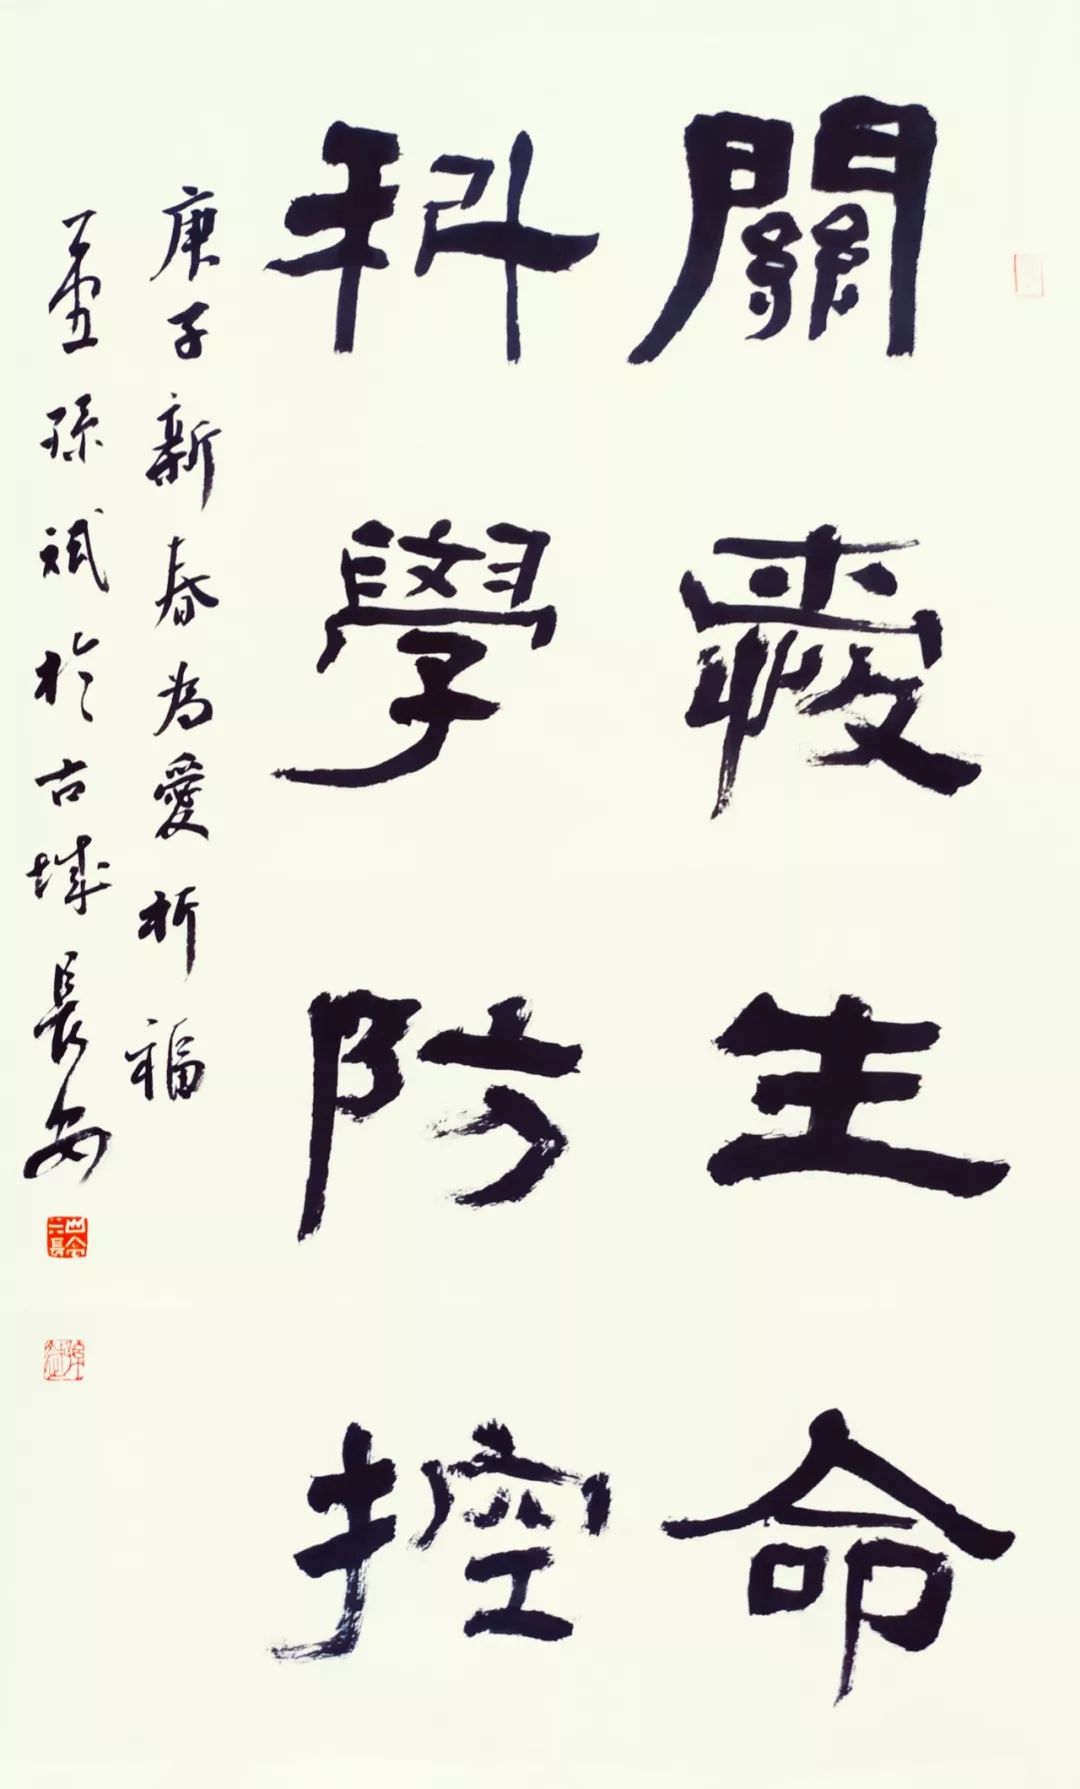 關愛生命
科學防控
庚子新春為愛祈福
孫斌於古城長安